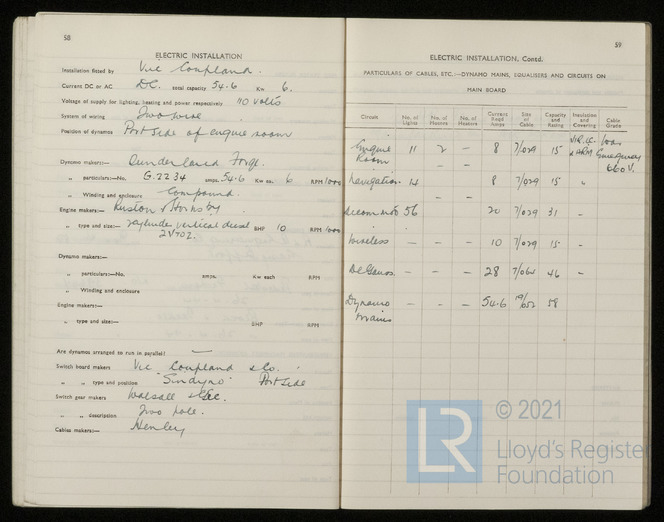 58
ELECTRIC INSTALLATION
Installation fitted by Vic Coupland.
Current DC or AC DC. total capacity 54.6 Kw 6.
Voltage of supply for lighting, heating and power respectively 110 volts
System of wiring Two wire
Position of dynamos Port side of engine room
Dynamo makers:— Sunderland Forge.
„ particulars:—No. G.2234 amps. 54.6 Kw ea. 6 RPM 1000
„ Winding and enclosure Compound
Engine makers:— Ruston & Hornsby
„ type and size:— 2 cylinder vertical diesel BHP 10 RPM 1000
2VTO2.
Dynamo makers:—
„ particulars:—No. amps. Kw each RPM
„ Winding and enclosure
Engine makers:—
„ type and size:— BHP RPM
Are dynamos arranged to run in parallel? —
Switch board makers Vic Coupland & Co.
„ „ type and position Port side
Switch gear makers Walsall
„ „ description Two pole.
Cables makers:— Henley
59
ELECTRIC INSTALLATION, Contd.
PARTICULARS OF CABLES, ETC.—DYNAMO MAINS, EQUALISERS AND CIRCUITS ON
MAIN BOARD
Circuit No. of Lights No. of Heaters Current Reqd Amps Size of Cable Capacity and Rating Insulation and Covering Cable Grade
Engine Room 11 2 - 8 7/029 15 V.R.
- -
Navigation 14 8 7/029 15 „
- -
Accom 56 20 7/029 31 -
Wireless - - - 10 7/029 15 -
DeGauss. - - - 28 7/064 46 -
Dynamo Mains - - - 54.6 19/052 58
LR
© 2021
Lloyd's Register
Foundation